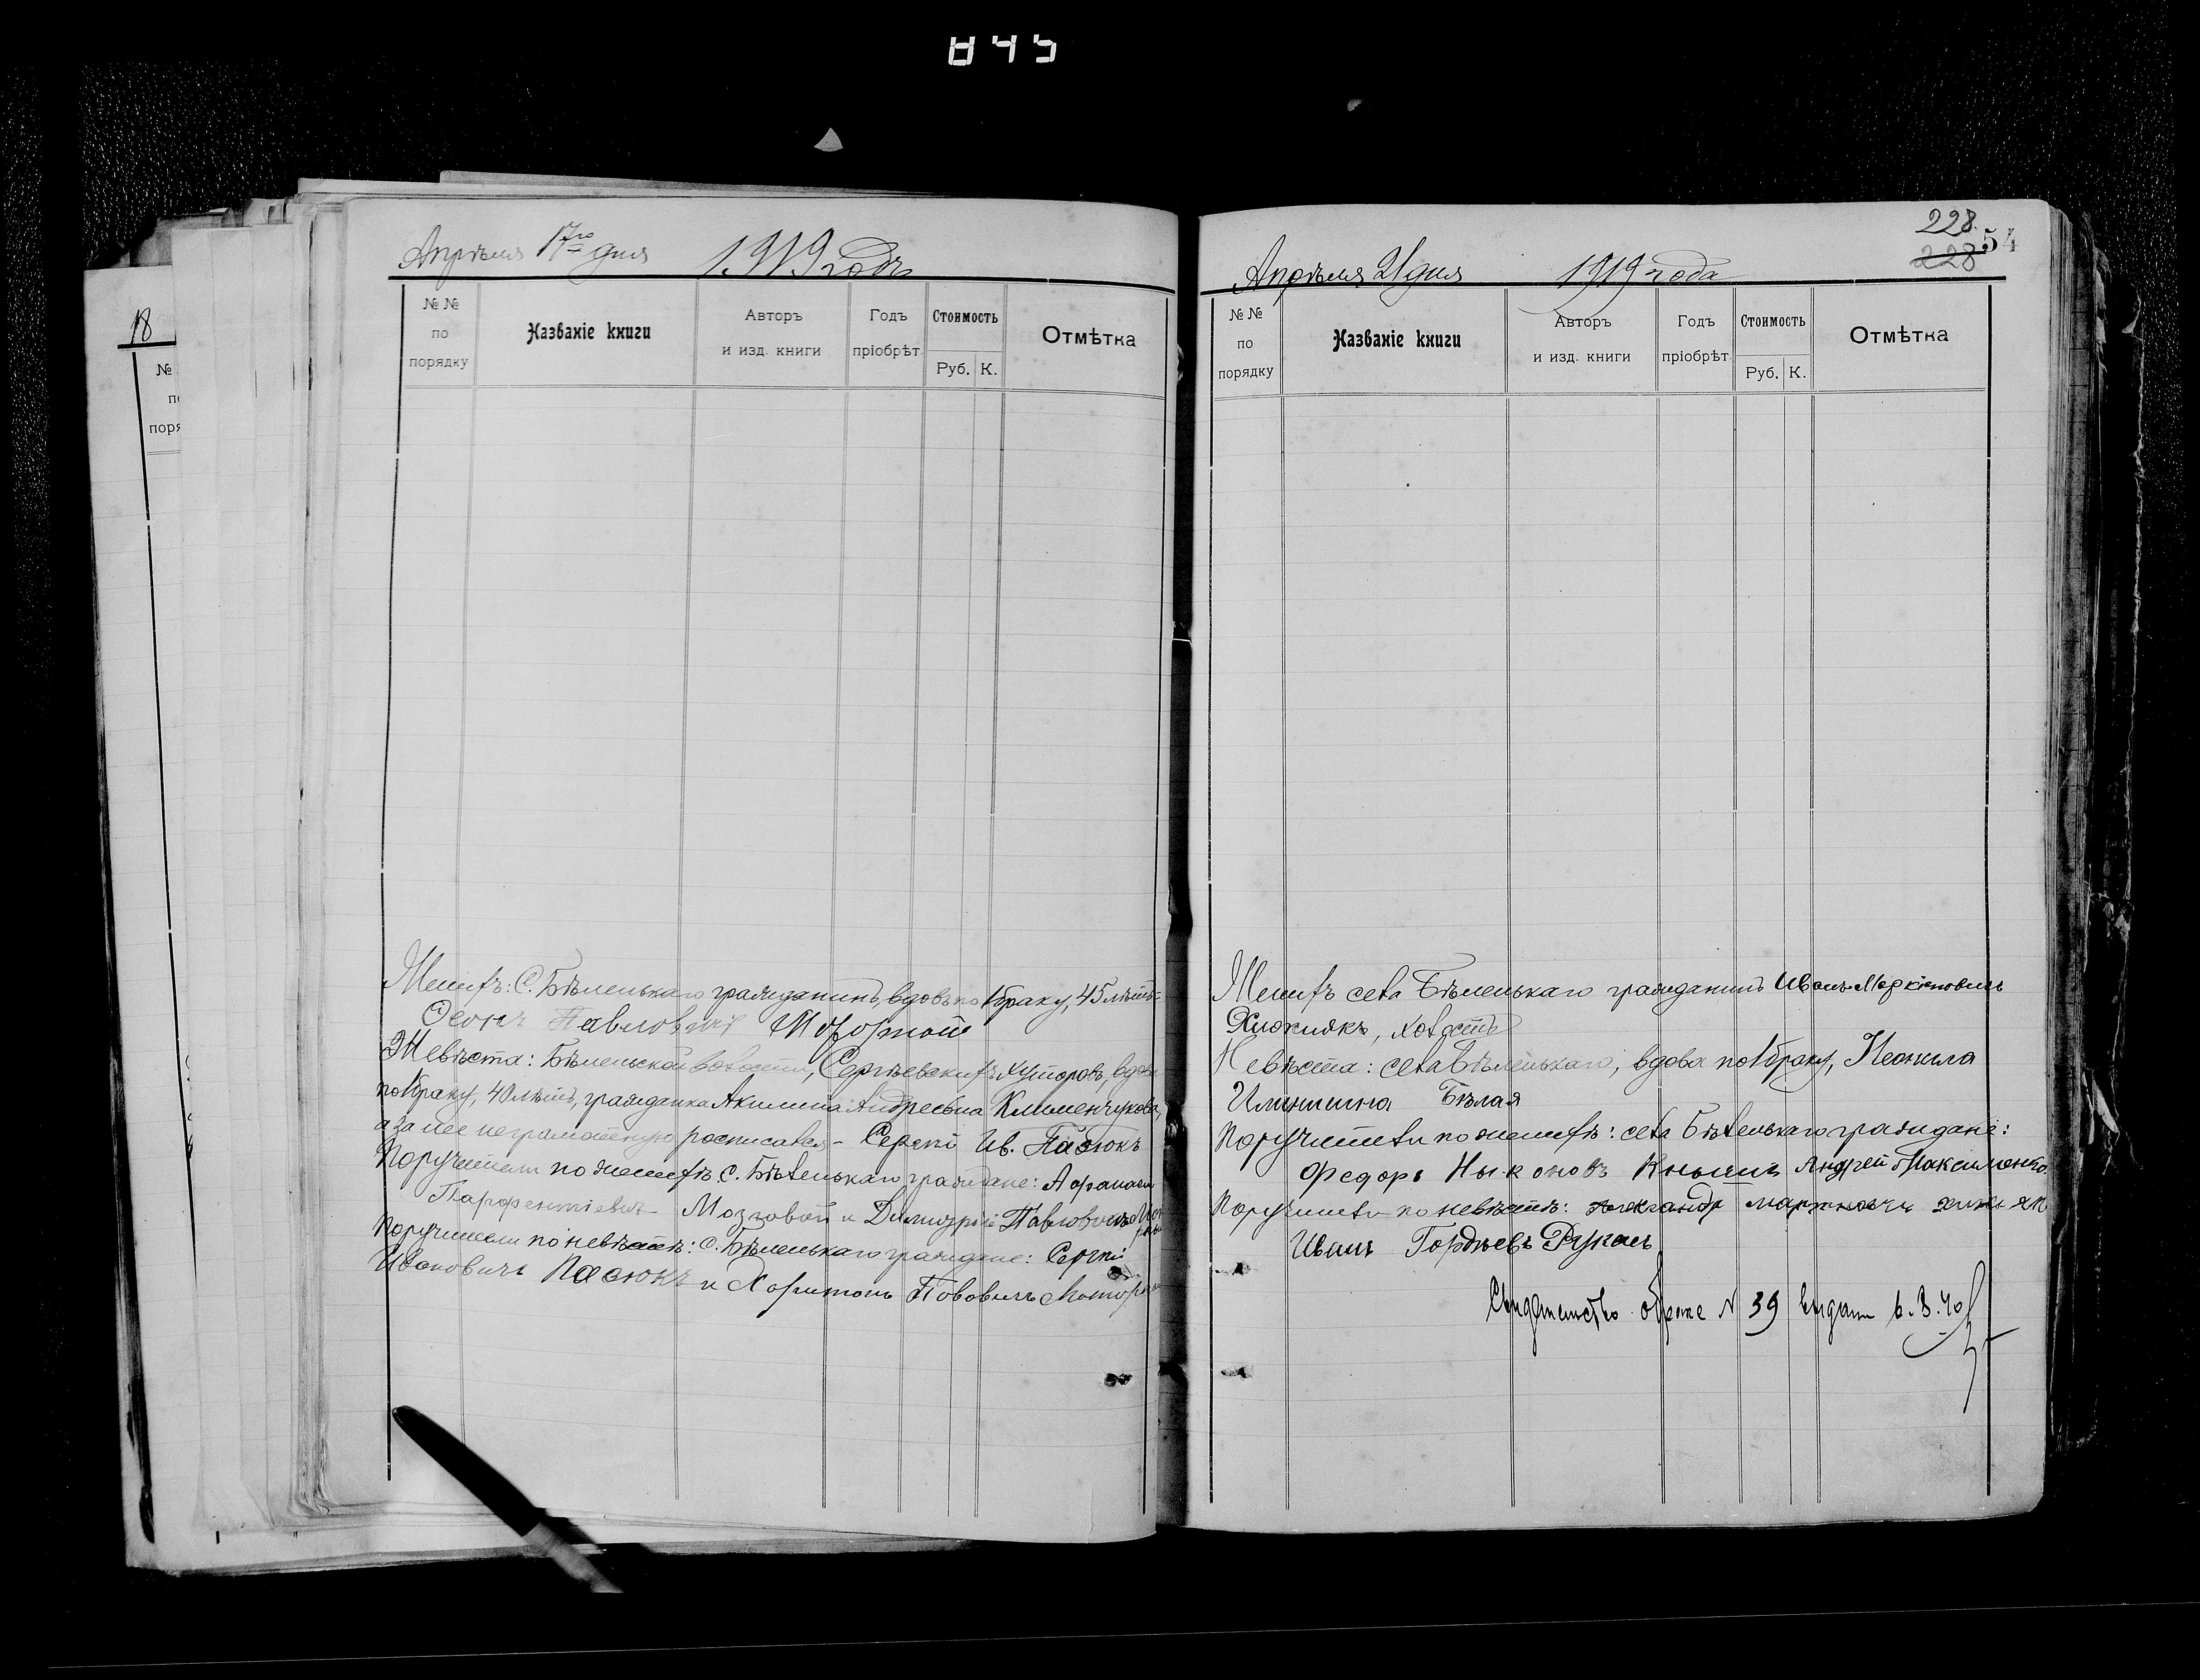 845
18
№
по
поря
Апрѣля 17го дня 1919 года
№ № по порядку
Названіе книги
Авторъ и изд. книги
Годъ пріобрѣт.
Стоимость
Руб. К.
Отмѣтка
Женихъ: С. Бѣленькаго гражданинъ, вдовъ по 1 браку, 45 лѣтъ
Павловичъ
Невѣста: Бѣленьской волости, Сергѣевскихъ хуторовъ, вдова
по 1 браку, 40 лѣтъ, гражданка Акилина Андреевна Клименчукова,
а за нее неграмотную росписался - Сергѣй Ив. Пасюкъ
Поручители по женихѣ: С. Бѣленькаго граждане: Афанасій
Парфентіевичъ Мозговой и Димитрій Павловичъ
Поручители по невѣстѣ: С. Бѣленькаго граждане: Сергѣй
Ивановичъ Пасюкъ и Харитонъ
228
228
54
Апрѣля 21 дня 1919 года
№ № по порядку
Названіе книги
Авторъ и изд. книги
Годъ пріобрѣт.
Стоимость
Руб. К.
Отмѣтка
Женихъ села Бѣленькаго гражданинъ Иванъ
Хижнякъ, холостъ
Невѣста: села Бѣленькаго, вдова по 1 браку, Неонила
Бѣлая
Поручители по женихѣ: села Бѣленькаго граждане:
Федоръ Ныконовъ Кнышъ Андрей Максименко
Поручители по невѣстѣ: Александр
Иванъ Гордѣевъ
Свидетельство о браке № 39 выдано 6.3.40